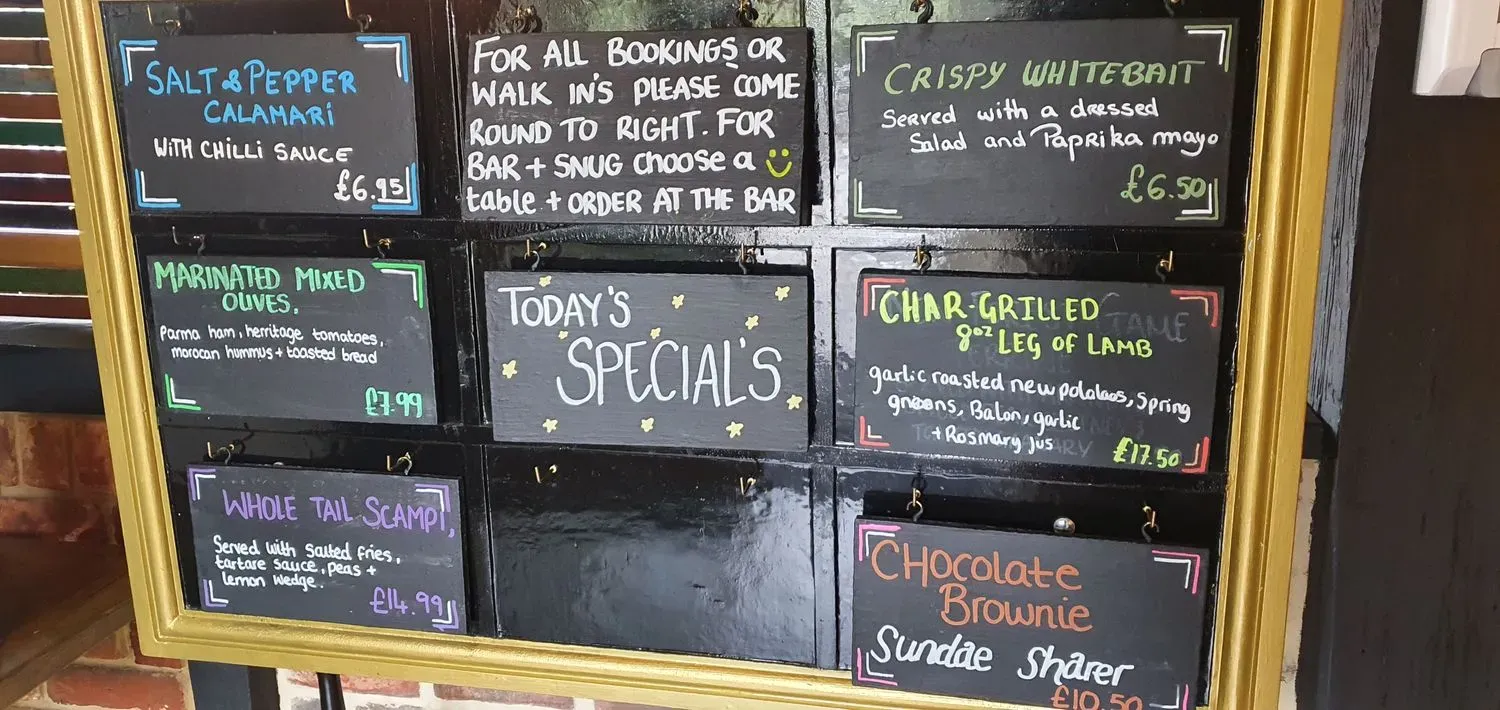 SALT & PEPPER
CALAMARI
WITH CHILLI SAUCE
£6.95
FOR ALL BOOKINGS OR
WALK IN'S PLEASE COME
ROUND TO RIGHT. FOR
BAR + SNUG choose a
table + ORDER AT THE BAR
CRISPY WHITEBAIT
Served with a dressed
Salad and Paprika mayo
£6.50
MARINATED MIXED
OLIVES.
Parma ham, herritage tomatoes,
morocan hummus + toasted bread
£7.99
TODAY'S
SPECIAL'S
CHAR-GRILLED
8oz LEG OF LAMB
garlic roasted new potatoes, Spring
greens, Balon, garlic
+ Rosmary jus
£17.50
WHOLE TAIL SCAMPI,
Served with salted fries,
tartare sauce, peas +
lemon wedge.
£14.99
CHocolate
Brownie
Sundae Sharer
£10.50